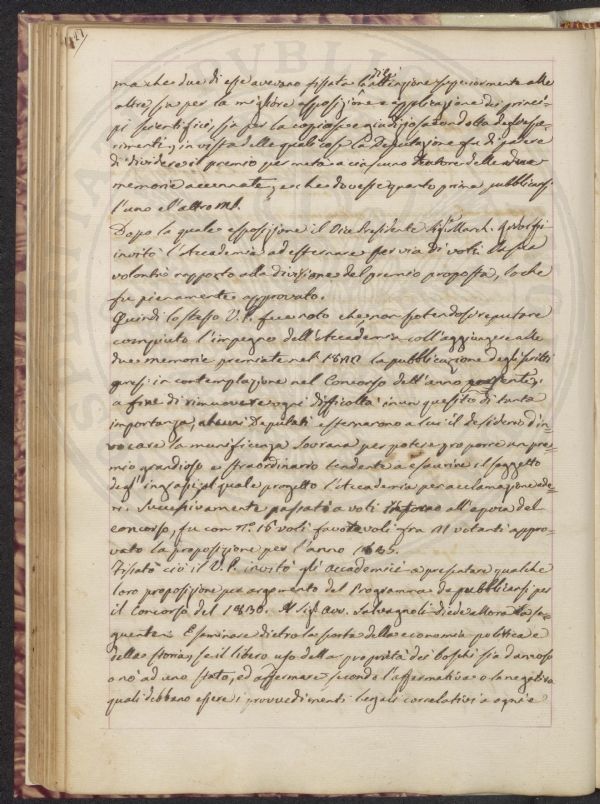 ma che due di esse avevano fissata la di lei attenzione superiormente alle
altre, sia per la migliore esposizione e applicazione dei princi-
pi scientifici, sia per la copiosa e giudiziosa condotta degli espe-
rimenti, in vista delle quali cose la Deputazione era di parere
di dividere il premio per metà a ciascuno Autore delle due
memorie accennate, e che dovesse quanto prima pubblicarsi
l'uno e l'altro
Dopo la quale esposizione il Vice Presidente Sig. March. Ridolfi
invitò l'Accademia ad esternare per via di voti la sua
volontà rapporto alla divisione del premio proposta, lo che
fu pienamente approvato.
Quindi lo stesso V. P. fece noto che non potendosi reputare
compiuto l'impegno dell'Accademia coll'aggiungere alle
due memorie premiate nel la pubblicazione degli scritti
presi in contemplazione nel Concorso dell'anno presente,
a fine di rimuovere ogni difficoltà in un quesito di tanta
importanza, alcuni Deputati esternarono a lui il desiderio d'in-
vocare la munificenza Sovrana per potere proporre un pre-
mio grandioso e straordinario tendente a esaurire il soggetto
degl'ingrassi, il quale progetto l'Accademia per acclamazione ade-
rì. Successivamente passati a voti intorno all'epoca del
concorso, fu con N.° 16 voti favorevoli fra 21 votanti appro-
vato la proposizione per l'anno 1835.
Fissato ciò il V. P. invitò gli accademici a presentare qualche
loro proposizione per argomento del Programma da pubblicarsi per
il Concorso del 1830. Il Sig. Avv. Salvagnoli diede allora la se-
guente: Esaminare dietro la scorta della economia politica e
della storia, se il libero uso della proprietà dei boschi sia dannoso
o no ad uno stato, ed affermare secondo l'affermativa o la negativa
quali debbano essere i provvedimenti legali correlativi a ogni e